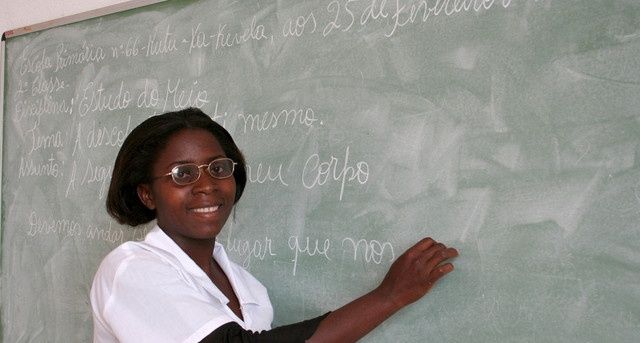 Escola Primária nº 66 - Kutu - Ka - Kevela, aos 25 de Fevereiro
Classe
Disciplina: Estudo do Meio
Tema: A mesmo.
Assunto: A meu corpo
Devemos lugar que nos